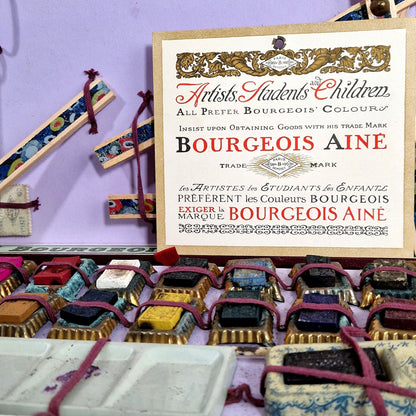 Artists, Students and Children
ALL PREFER BOURGEOIS' COLOURS
INSIST UPON OBTAINING GOODS WITH HIS TRADE MARK
BOURGEOIS AINÉ
TRADE PARIS MARK
LES ARTISTES LES ÉTUDIANTS LES ENFANTS
PRÉFÈRENT les Couleurs BOURGEOIS
EXIGER la MARQUE BOURGEOIS AINÉ